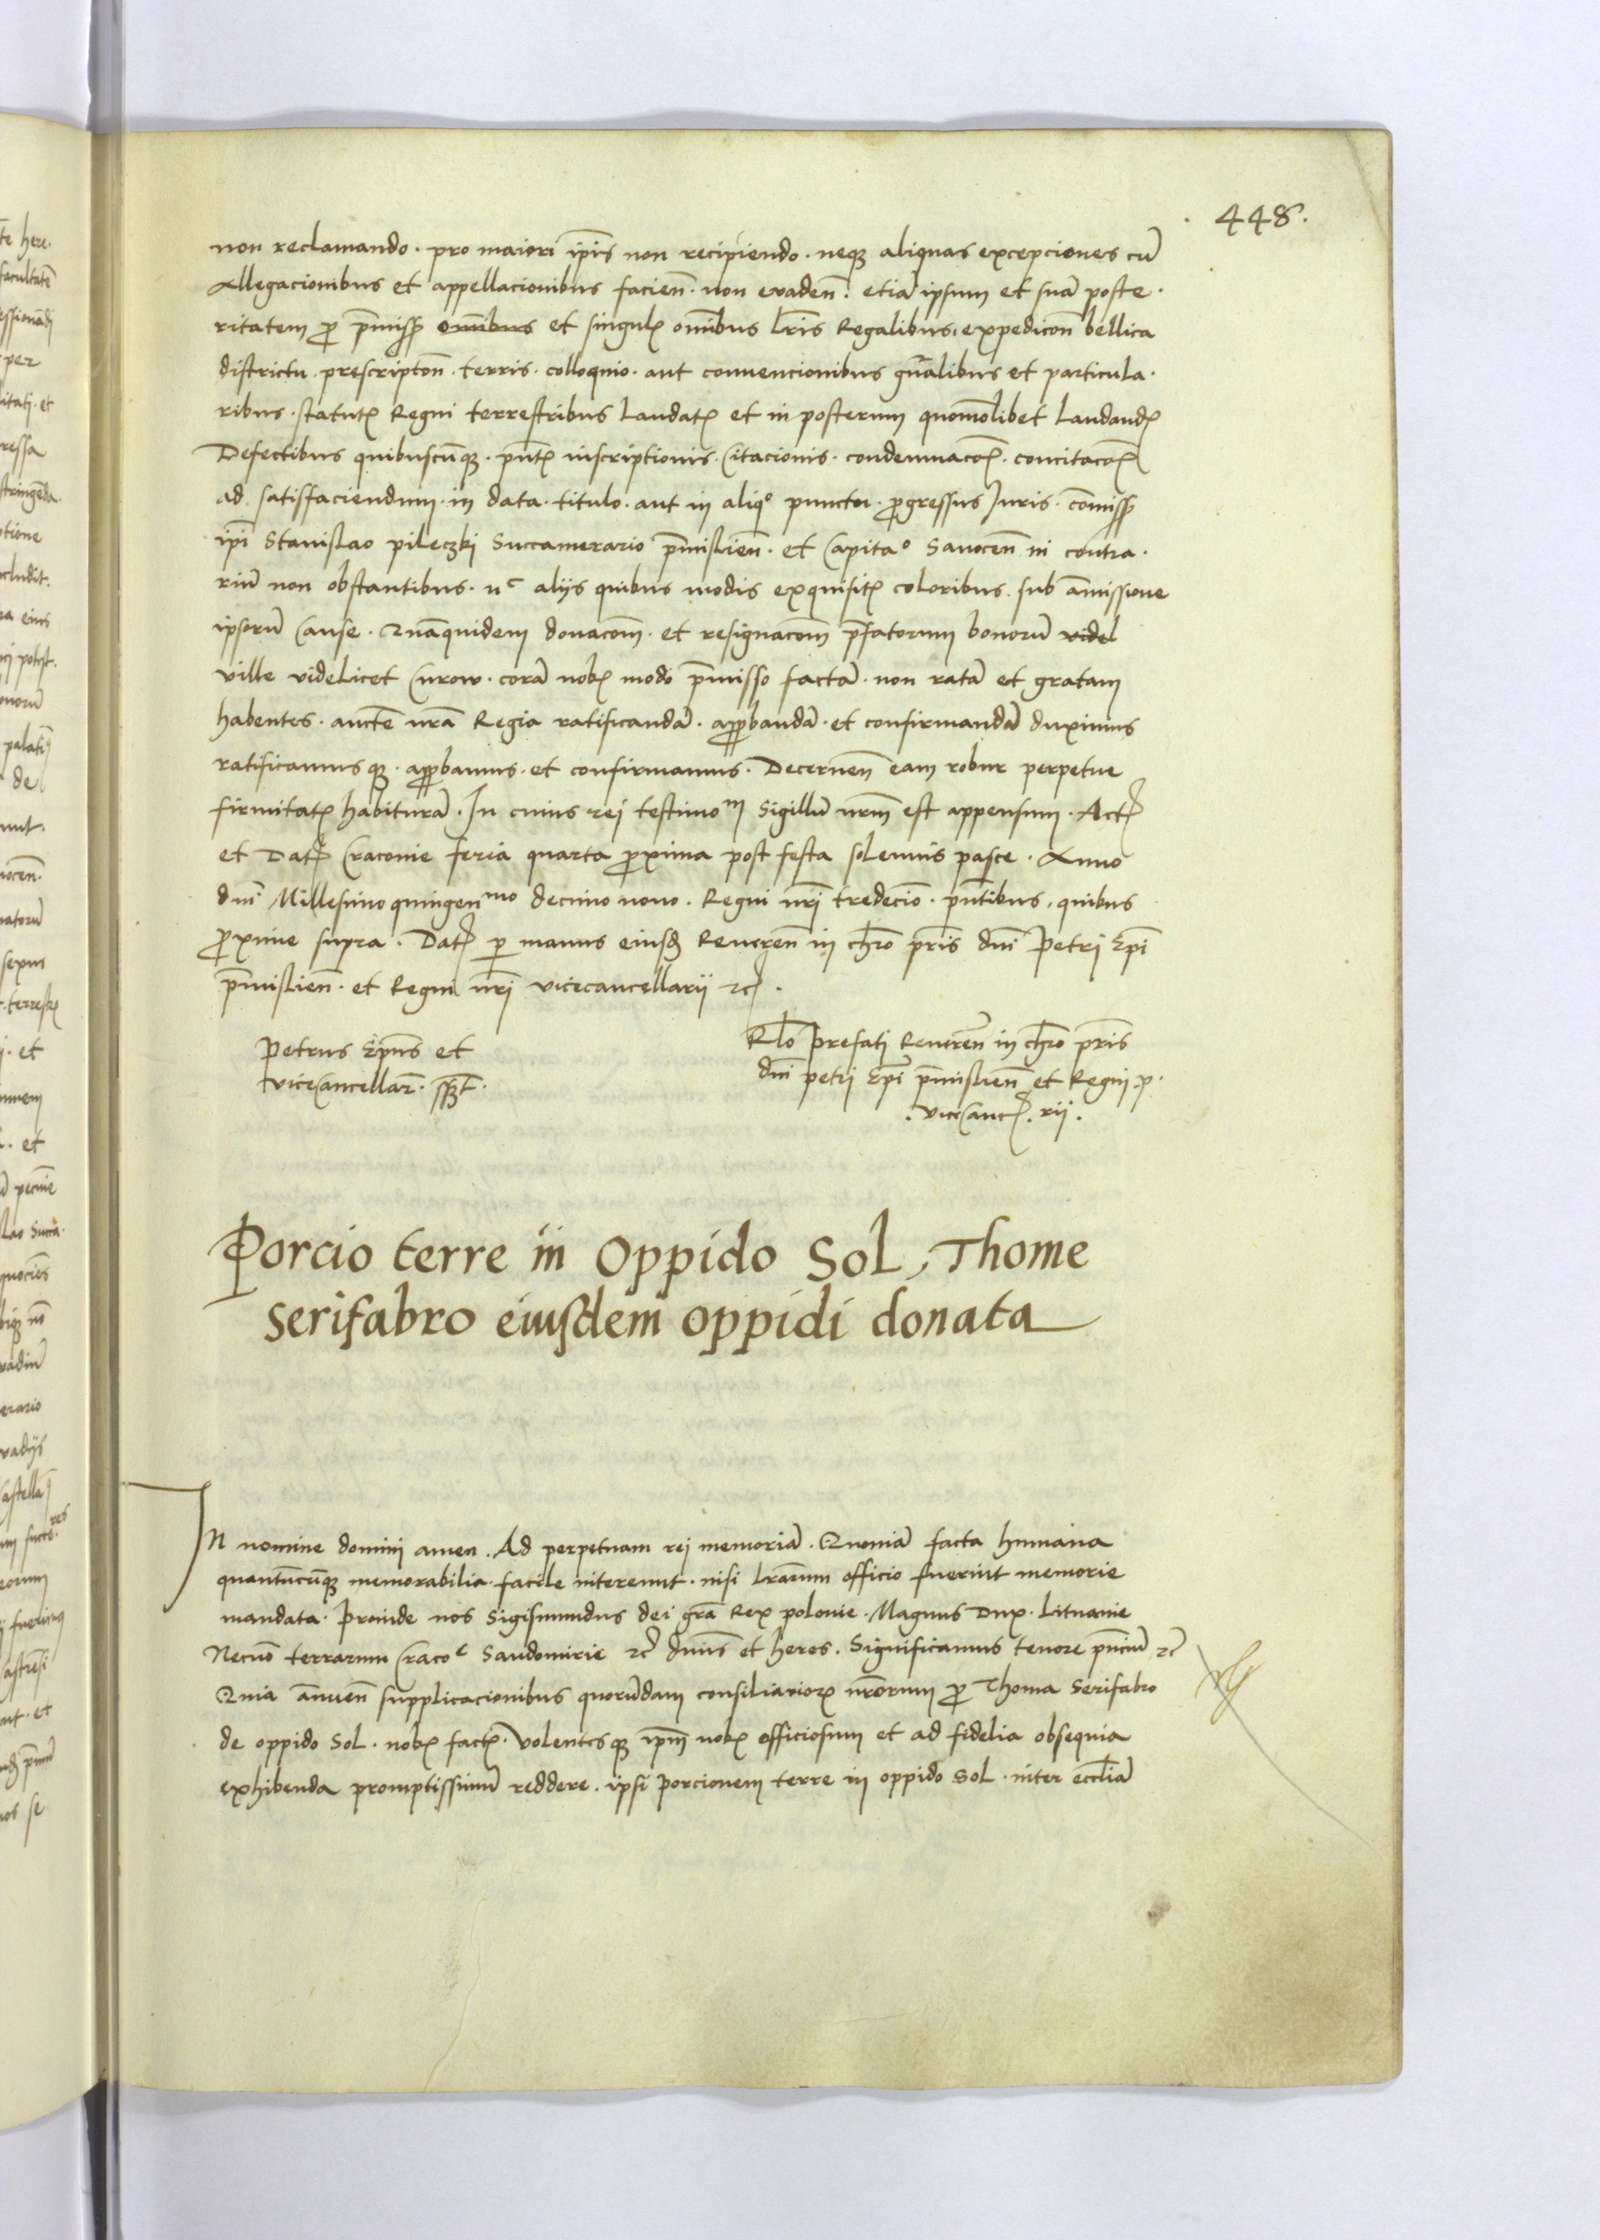 448.
non reclamando. pro maiori ip̄is non recipiendo. neqꝫ aliquas excepciones cū
Allegacionibus et appellacionibus facien̄. non evaden̄. etiā ipsum et suā poste.
ritatem ꝓ p̄missꝭ om̄ibus et singulꝭ om̄ibus lr̄is Regalibus. expedicōn bellica
districtu. prescriptōn. terris. colloquio. aut convencionibus gn̄alibus et particula.
ribus. statutꝭ Regni terrestribus laudatꝭ et in posterum quomōlibet laudandꝭ
Defectibus quibuscūqꝫ. pn̄tꝭ inscriptionis. Citacionis. condemnacōꝭ. concitacōꝭ
ad satisfaciendum. in data. titulo. aut in aliqº punctu. ꝓgressus Juris. com̄issꝭ
ip̄i Stanislao pileczki Succamerario p̄mislien̄. et Capitaº Sanocen̄ in contra.
riū non obstantibus. nᶜ aliis quibus modis exquisitꝭ coloribus. sub am̄issione
ipsorū Cause. Quāquidem donacōm. et resignacōm p̄fatorum bonorū videl
ville videlicet Curow. corā nobꝭ modo p̄misso factā. non ratā et gratam
habentes. auctē nr̄a Regia ratificandā. apꝓbandā. et confirmandā duximus
ratificamusqꝫ. apꝓbamus. et confirmamus. Decernen̄ eam robur perpetue
firmitatꝭ habiturā. In cuius rei testimoᵐ Sigillū nr̄m est appensum. Actꝭ
et Datꝭ Craconie feria quarta ꝓxima post festa solennis pasce. Anno
dn̄i Millesimo quingenᵐᵒ decimo nono. Regni nr̄i tredecīo. pn̄tibus. quibus
ꝓxime supra. Datꝭ ꝑ manus eiusdꝭ Reveren̄ in chr̄o pr̄is dn̄i Petri Ep̄i
p̄mislien̄. et Regni nr̄i vicecancellarii rcꝭ.
Petrus Ep̄us et
viceCancellarꝭ. sspt.
Rl̄o prefati Reveren̄ in chr̄o pr̄is
dn̄i petri Ep̄i p̄mislien̄ et Regni. p.
. viceCancꝭ. rii.
Porcio terre in Oppido Sol, Thome
Serifabro eiusdem oppidi donata
In nomine domini amen. Ad perpetuam rei memoriā. Quoniā facta humana
quantūcūqꝫ memorabilia. facile intereunt. nisi lr̄arum officio fuerint memorie
mandata. Proinde nos Sigismundus dei grā Rex polonie. Magnus Dux. Lituanie
Necnō terrarum Cracoᶜ Sandomirie rcꝭ dn̄us et heres. Significamus tenore pn̄ciū rcꝭ
Quia an̄uen̄ supplicacionibus quorūdam consiliarioꝝ nr̄orum ꝓ Thoma Serifabro
de oppido Sol. nobꝭ factꝭ. Volentesqꝫ ip̄m nobꝭ officiosum et ad fidelia obsequia
exhibenda promptissimū reddere. ipsi porcionem terre in oppido Sol. inter eccl̄iā